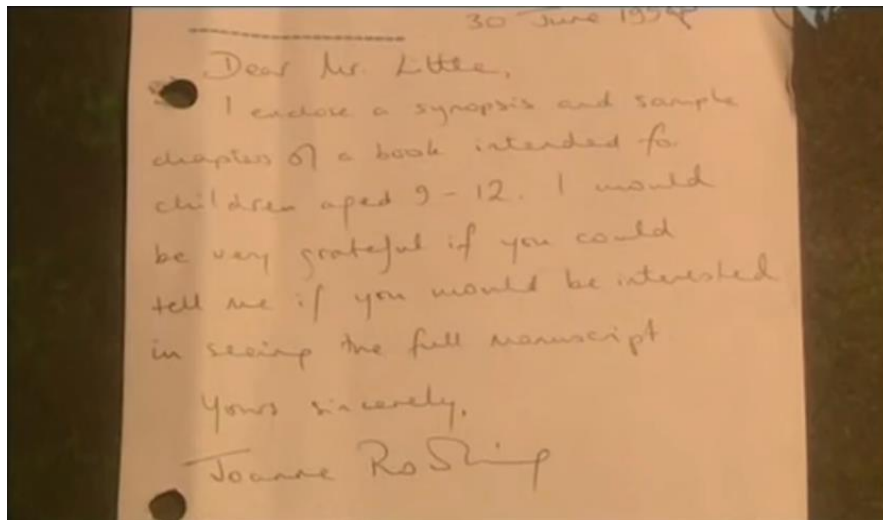 30 June 199
Dear Mr. Little,
I enclose a synopsis and sample
chapters of a book intended for
children aged 9-12. I would
be very grateful if you could
tell me if you would be interested
in seeing the full manuscript
Yours sincerely,
Joanne Rowling